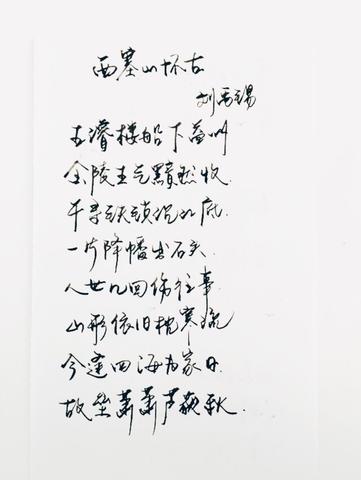 西塞山怀古
刘禹锡
王濬楼船下益州
金陵王气黯然收.
千寻铁锁沉江底.
一片降幡出石头.
人世几回伤往事
山形依旧枕寒流
今逢四海为家日.
故垒萧萧芦荻秋.